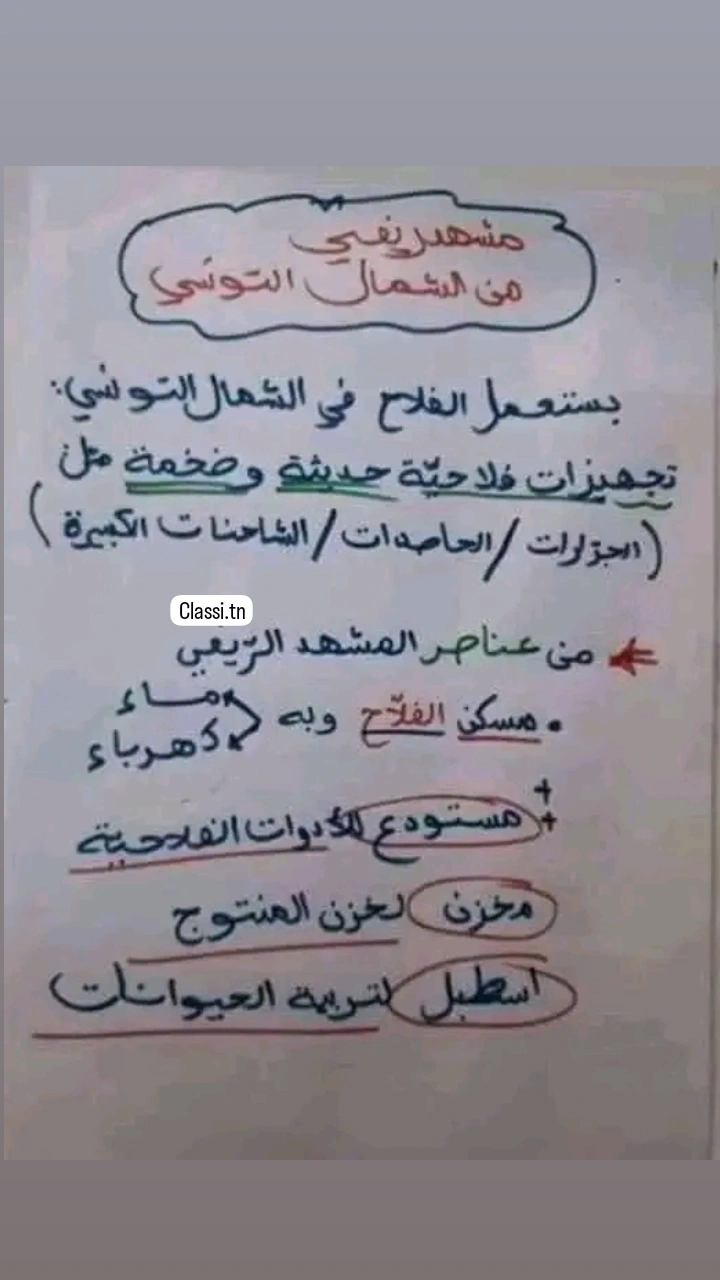 مشهد ريفي
من الشمال التونسي
يستعمل الفلاح في الشمال التونسي:
تجهيزات فلاحيّة حديثة وضخمة مثل
(الجرّارات / الحاصدات / الشاحنات الكبيرة)
Classi.tn
من عناصر المشهد الرّيفي
• مسكن الفلاّح وبه ماء
كهرباء
+
+ مستودع للأدوات الفلاحية
مخزن لخزن المنتوج
اسطبل لتربية الحيوانات